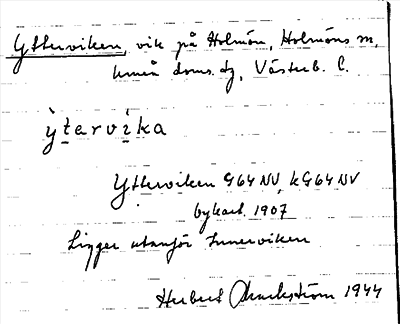 Ytterviken, vik på Holmön, Holmöns sn,
Umeå doms. tg, Västerb. l.
ỳt̠ervi̠ka
Ytterviken G64NV, kG64NV
bykart. 1907
Ligger utanför Innerviken
Herbert Markström 1944